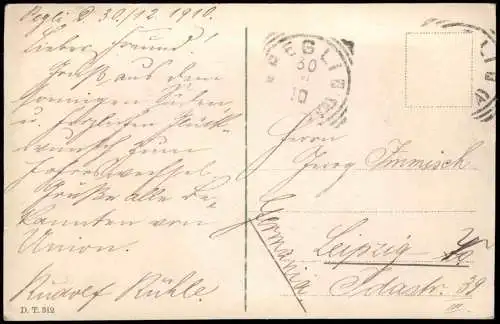 Pegli d. 30/12. 1910.
Lieber Freund!
Gruß aus dem
sonnigen Süden
u. herzlichen Glück-
wunsch zum
Jahreswechsel.
Grüße alle Be-
kannten von
Union.
Rudolf Rühle.
D. T. 312
PEGLI
30
10
Herrn
Georg Immisch
Leipzig
Idastr. 39
III.
Germania